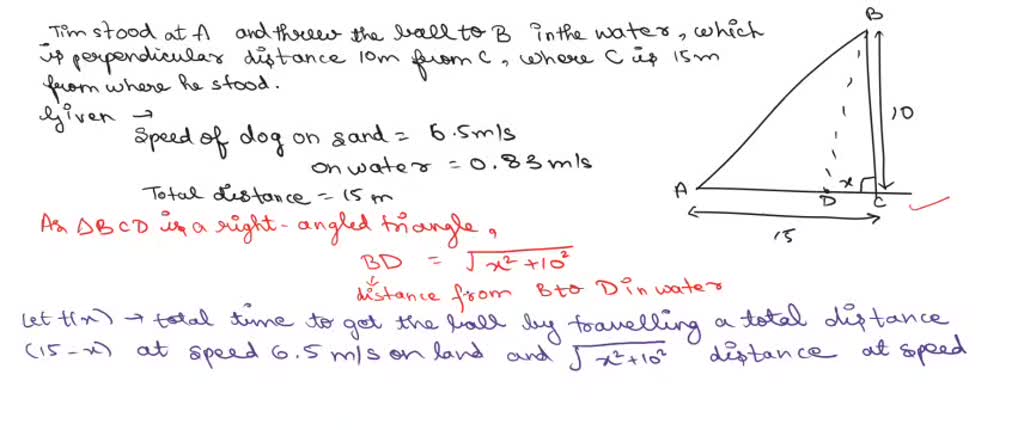 Tim stood at A and threw the ball to B in the water, which
is perpendicular distance 10m from C, where C is 15m
from where he stood.
Given →
Speed of dog on sand = 6.5m/s
on water = 0.83 m/s
Total distance = 15 m
As △BCD is a right-angled triangle,
BD = √x²+10²
distance from B to D in water
Let t(x) → total time to get the ball by travelling a total distance
(15-x) at speed 6.5 m/s on land and √x²+10² distance at speed
B
10
A
x
D
C
15